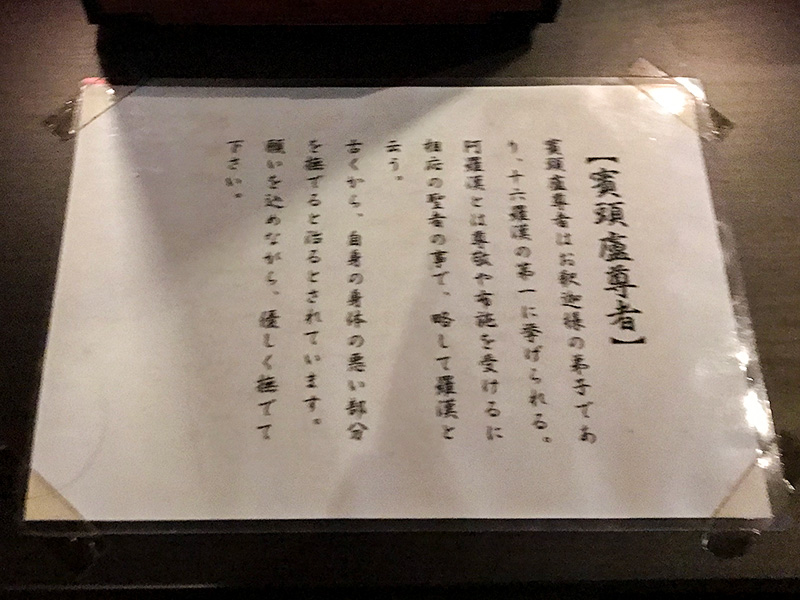 【賓頭盧尊者】
賓頭盧尊者はお釈迦様の弟子であ
り、十六羅漢の第一に挙げられる。
阿羅漢とは尊敬や布施を受けるに
相応の聖者の事で、略して羅漢と
云う。
古くから、自身の身体の悪い部分
を撫でると治るとされています。
願いを込めながら、優しく撫でて
下さい。